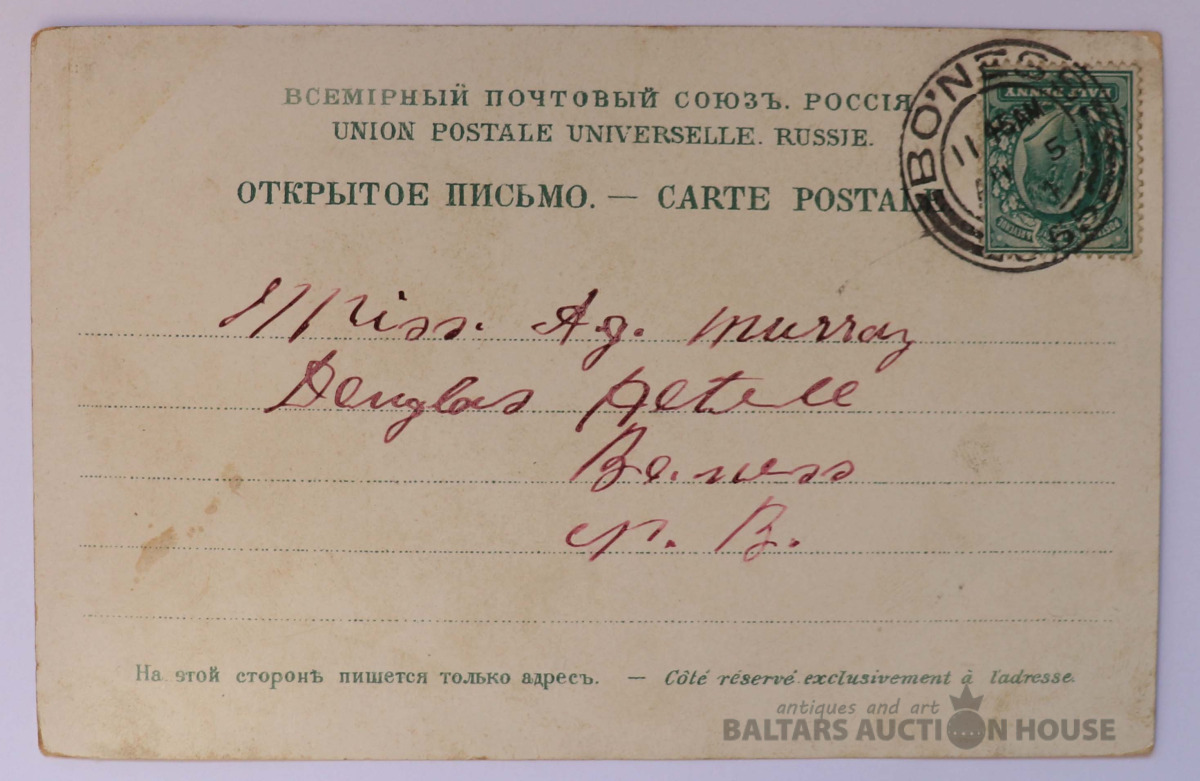 ВСЕМІРНЫЙ ПОЧТОВЫЙ СОЮЗЪ. РОССІЯ
UNION POSTALE UNIVERSELLE. RUSSIE.
ОТКРЫТОЕ ПИСЬМО. — CARTE POSTALE
BO'NESS
HALF PENNY
Miss. Ag. Murray
Douglas Hotele
Bo.ness
N. B.
На этой сторонѣ пишется только адресъ. — Côté réservé exclusivement à l'adresse.
antiques and art
BALTARS AUCTION HOUSE